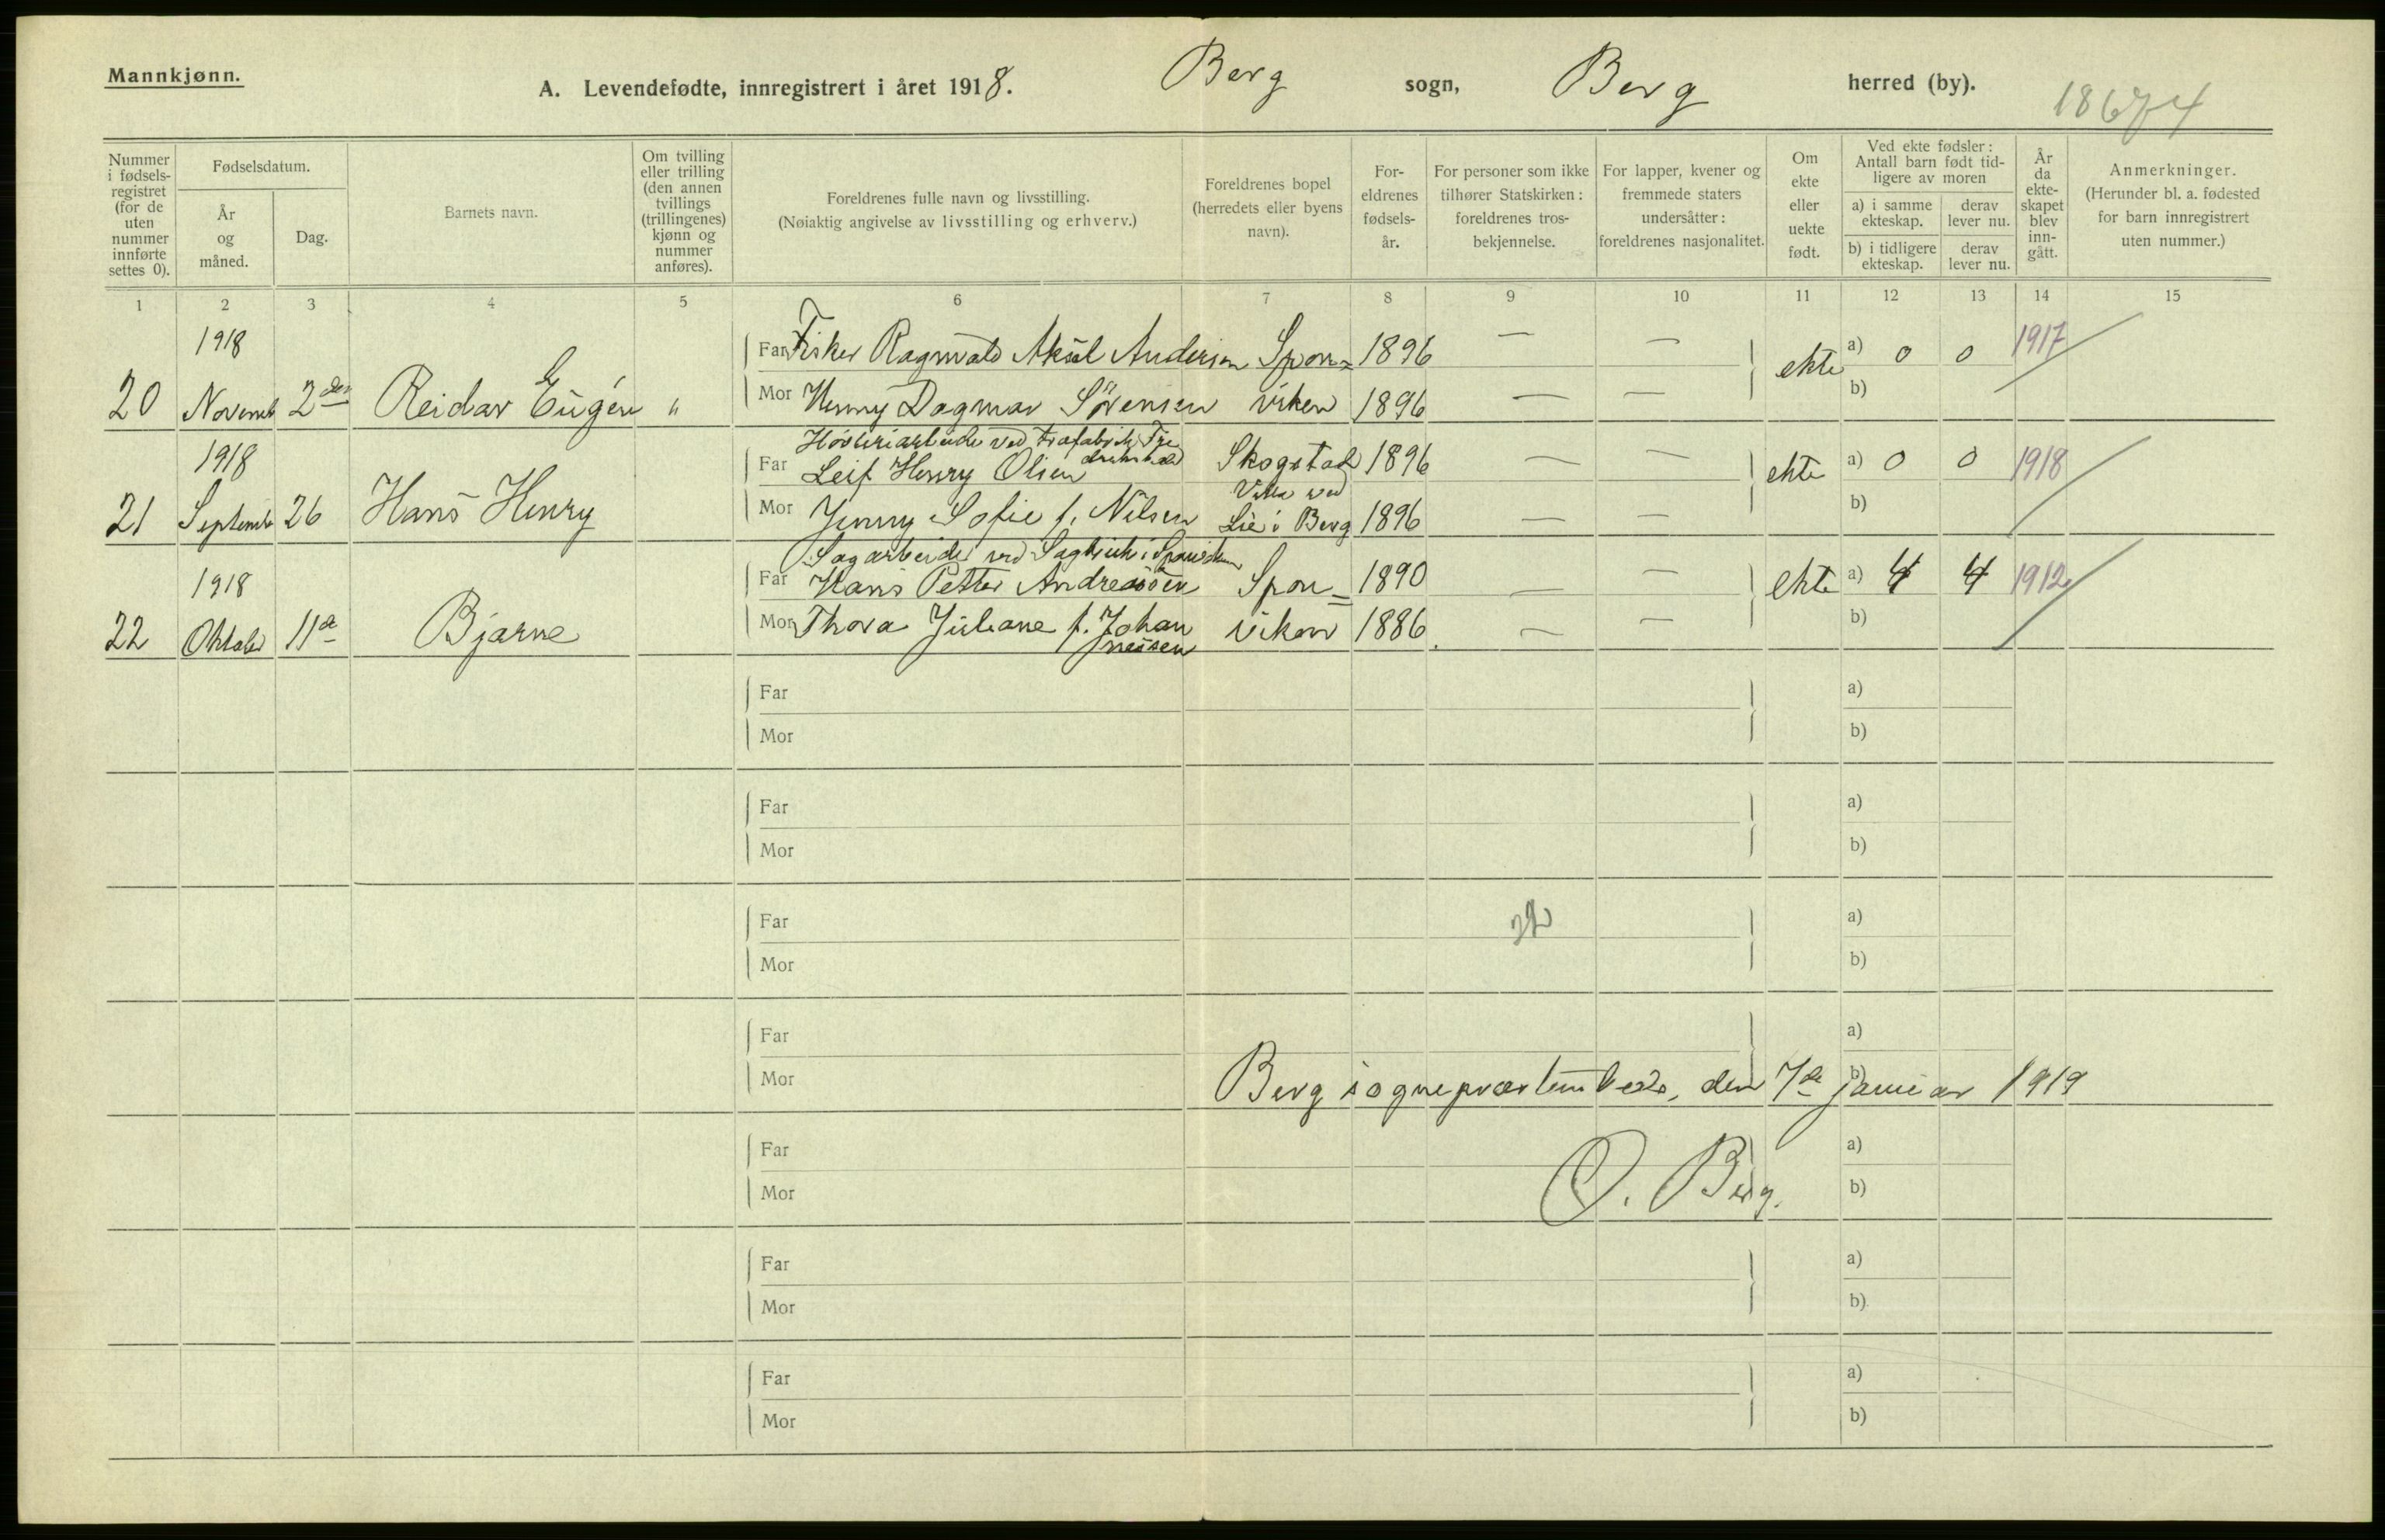 Mannkjønn.
A. Levendefødte, innregistrert i året 1918. Berg sogn, Berg herred (by). 18674
Nummer i fødsels- registret (for de uten nummer innførte settes 0).
Fødselsdatum.
År og måned.
Dag.
Barnets navn.
Om tvilling eller trilling (den annen tvillings (trillingenes) kjønn og nummer anføres).
Foreldrenes fulle navn og livsstilling.
(Nøiaktig angivelse av livsstilling og erhverv.)
Foreldrenes bopel (herredets eller byens navn).
For- eldrenes fødsels- år.
For personer som ikke tilhører Statskirken: foreldrenes tros- bekjennelse.
For lapper, kvener og fremmede staters undersåtter: foreldrenes nasjonalitet.
Om ekte eller uekte født.
Ved ekte fødsler: Antall barn født tid- ligere av moren
a) i samme ekteskap. derav lever nu.
b) i tidligere ekteskap. derav lever nu.
År da ekte- skapet blev inn- gått.
Anmerkninger.
(Herunder bl. a. fødested for barn innregistrert uten nummer.)
1 2 3 4 5 6 7 8 9 10 11 12 13 14 15
1918 Far Fisker Ragnvald Aksel Andersen Spon= 1896 — — a) 0 0 1917
20 Novemb 2den Reidar Eugén " Mor Henny Dagmar Sörensen viken 1896 — — ekte b)
1918 ved Fre
Far Leif Henry Olsen Skogstad 1896 — — ekte a) 0 0 1918
Villa ved
21 Septembr 26 Hans Henry Mor Jenny Sofie f. Nilsen Lie i Berg 1896 — — b)
Sagarbeider ved Sagbruk i Sponviken
1918 Far Hans Petter Andreassen Spon= 1890 — — ekte a) 4 4 1912
22 Oktober 11te Bjarne Mor Thora Juliane f. Johan viken 1886. — — b)
nessen
Far a)
Mor b)
Far a)
Mor b)
Far a)
Mor b)
Far a)
Mor b)
Berg sogneprestembede, den 7de januar 1919
Far a)
Mor b)
O. Berg.
Far a)
Mor b)
Far a)
Mor b)